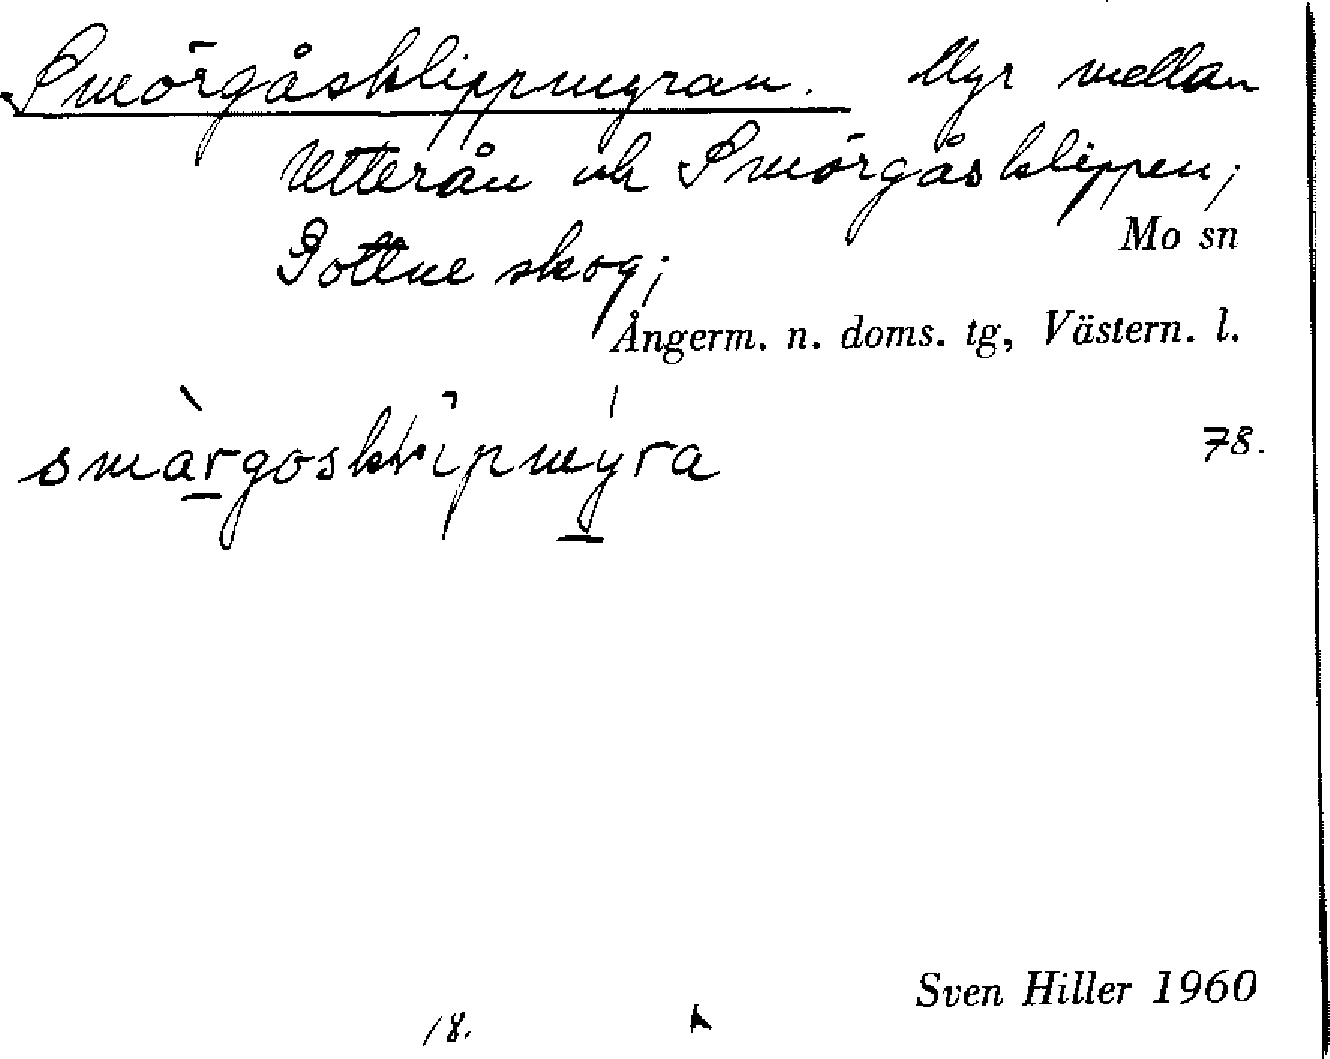 Smörgåsklippmyran. Myr mellan
Utterån och Smörgåsklippen;
Mo sn
Gottne skog;
Ångerm. n. doms. tg, Västern. l.
78.
Sven Hiller 1960
18.